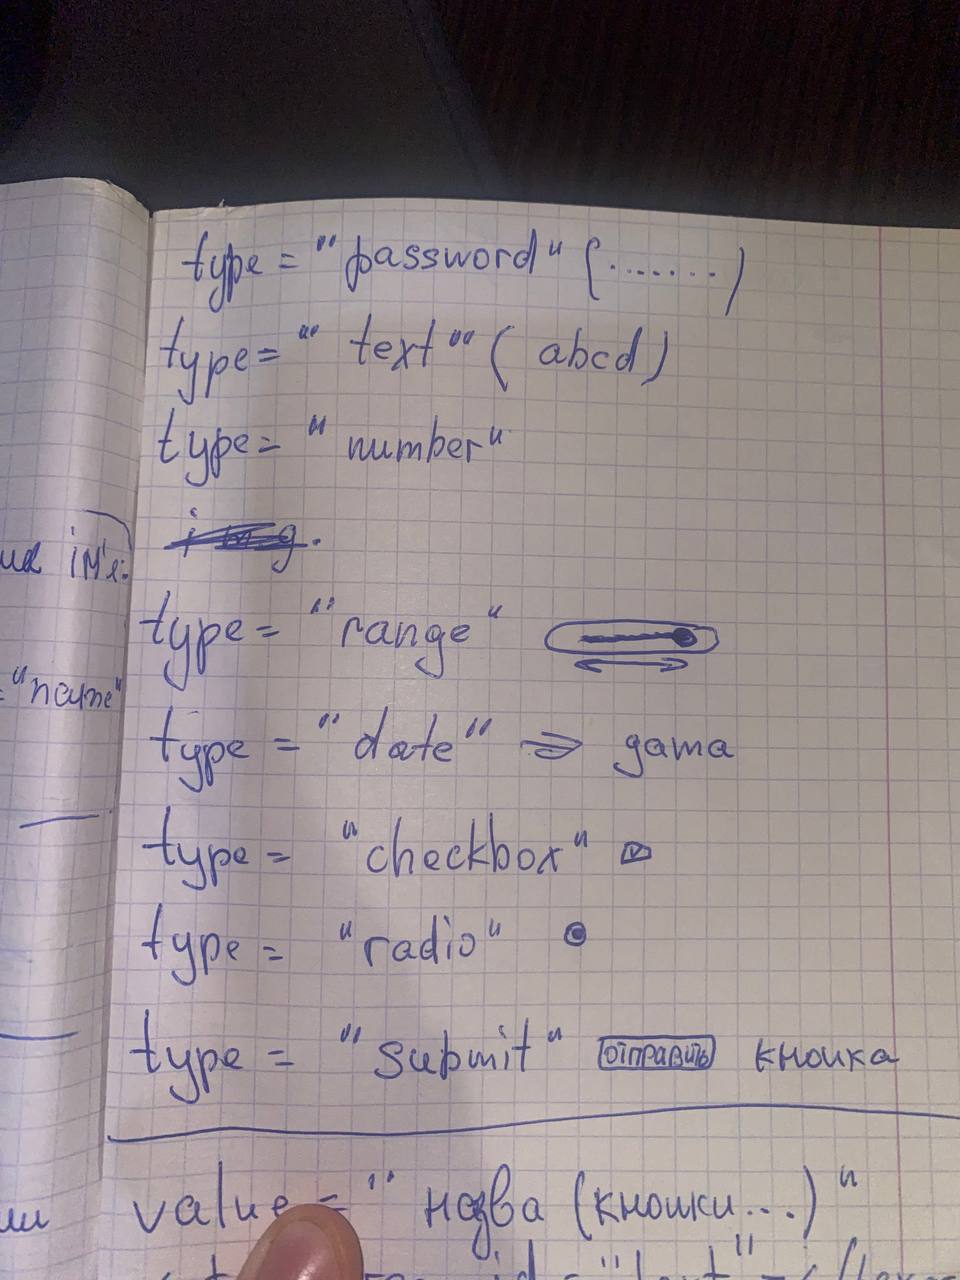 type = "password" (.......)
type = "text" (abcd)
type = "number"
img.
type = "range"
type = "date" ⇒ дата
type = "checkbox"
type = "radio"
type = "submit" отправить кнопка
value = "назва (кнопки...)"
ім'я:
= "name"